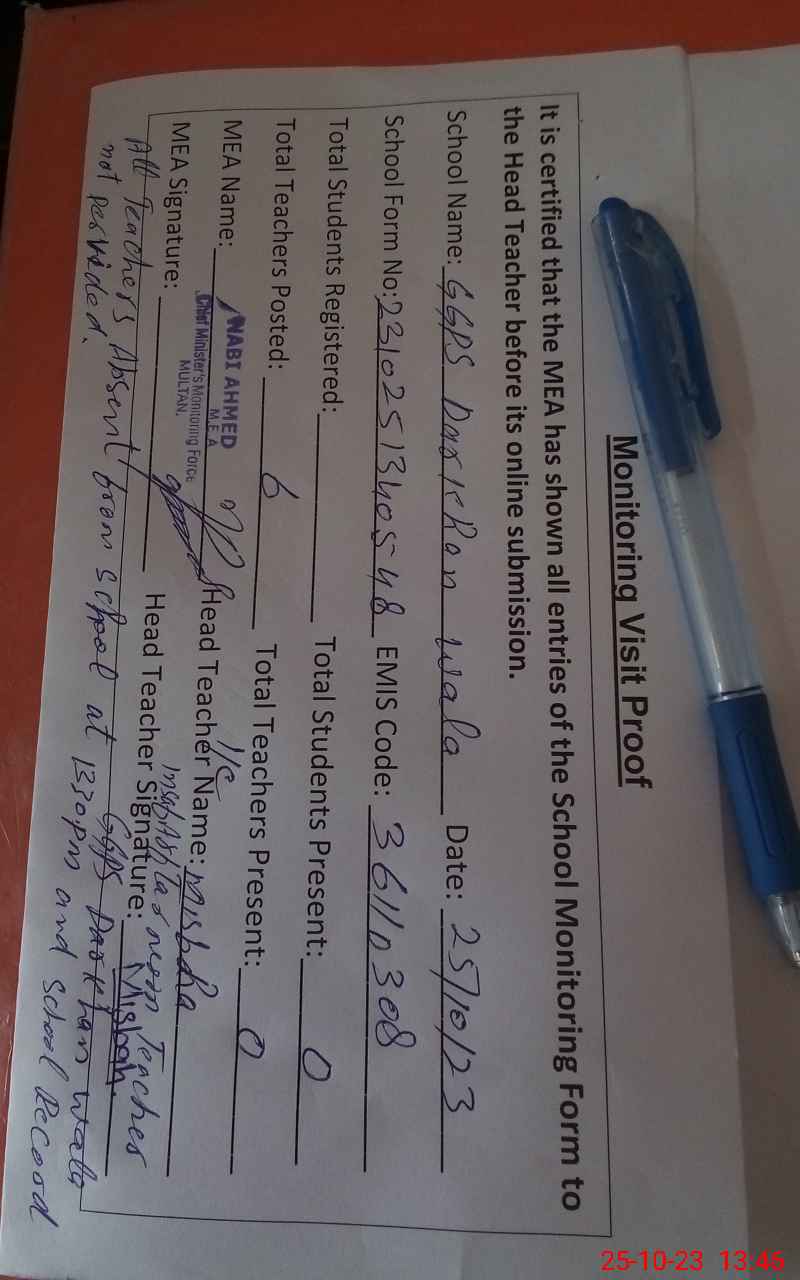 Monitoring Visit Proof
It is certified that the MEA has shown all entries of the School Monitoring Form to
the Head Teacher before its online submission.
School Name: GGPS Darkhan wala Date: 25/10/23
School Form No: 2310251340548 EMIS Code: 36110308
Total Students Registered: Total Students Present: 0
Total Teachers Posted: 6 Total Teachers Present: 0
MEA Name: Head Teacher Name: Misbha
NABI AHMED
M.E.A
Chief Minister's Monitoring Force
MULTAN.
I/c
Teacher
MEA Signature: Head Teacher Signature: Misbah
GGPS Darkhan wala
All Teachers Absent from school at 1330pm and school Record
not pervided.
25-10-23 13:46